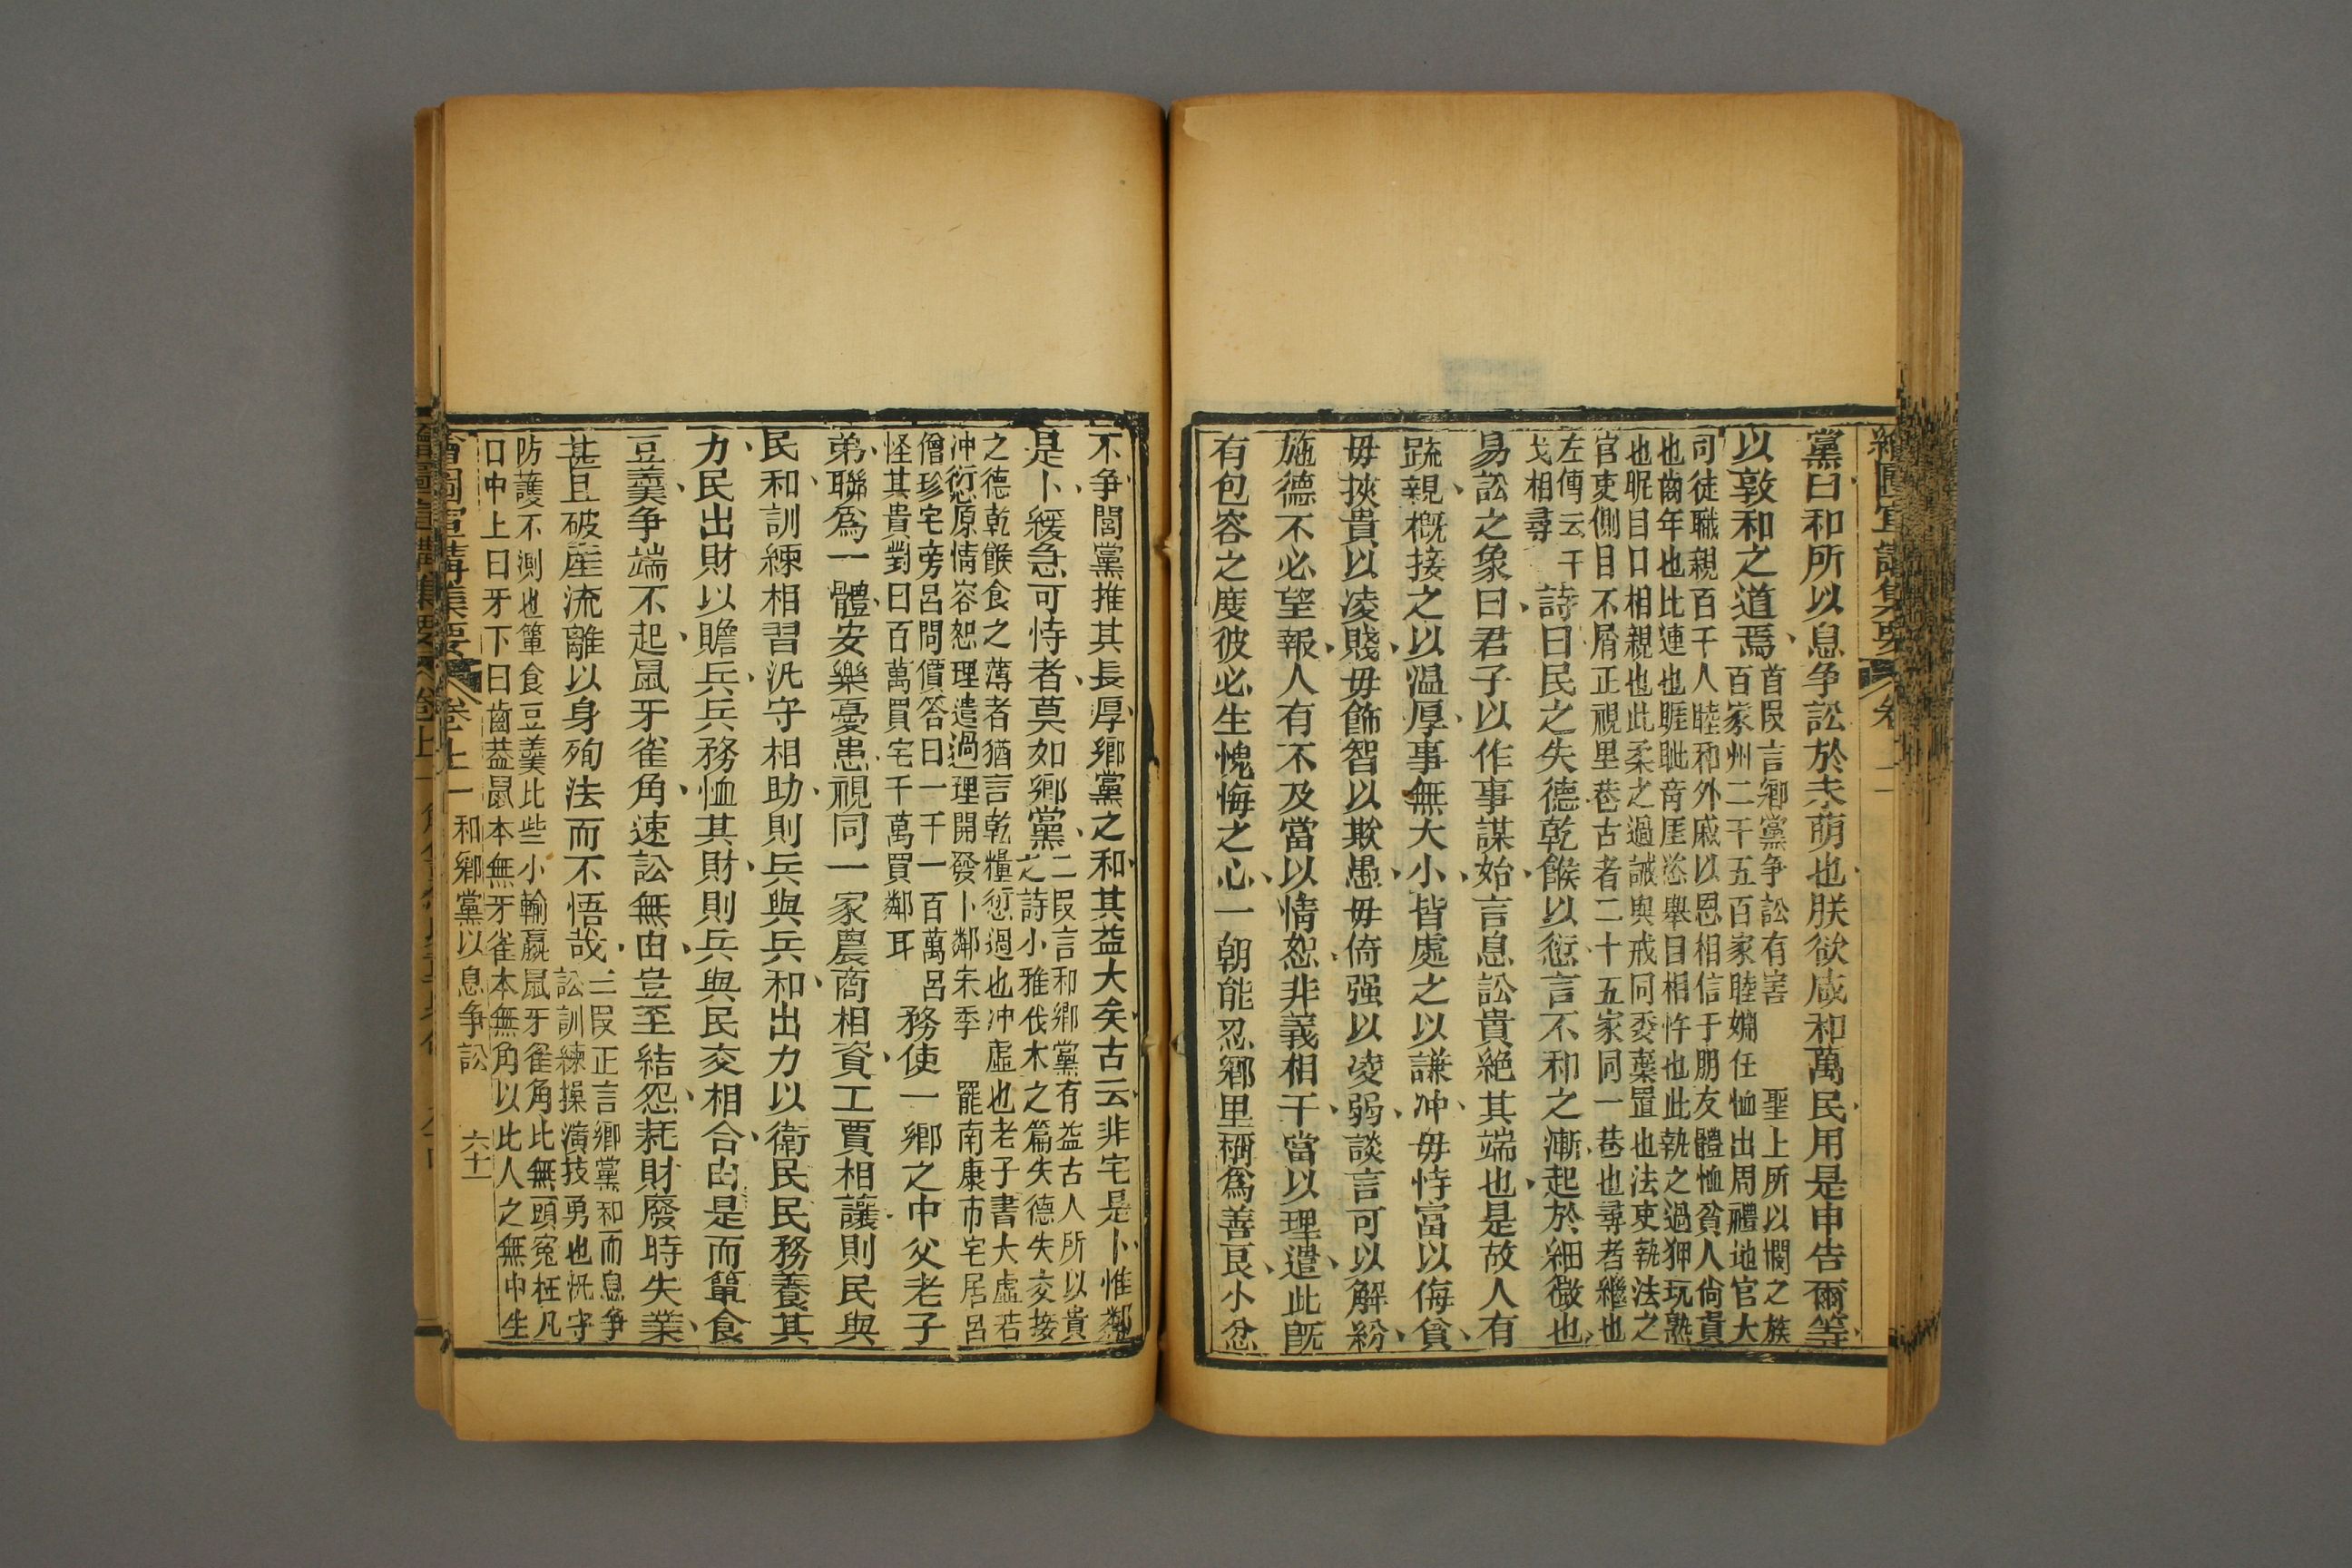 繪圖宣講集要 卷
黨曰和所以息爭訟於未萌也朕欲咸和萬民用是申告爾等
以敦和之道焉
首叚言鄉黨爭訟有害 聖上所以憫之族
百家州二千五百家睦婣任恤出周禮地官大
司徒職親百千人睦和外戚以恩相信于朋友體恤貧人尙貴
也齒年也比連也睚眦音厓恣舉目相忤也此執之過狎玩熟
也昵目口相親也此柔之過誡與戒同委棄置也法吏執法之
官吏側目不屑正視里巷古者二十五家同一巷也尋者繼也
左傳云干
戈相尋
詩曰民之失德乾餱以愆言不和之漸起於細微也
易訟之象曰君子以作事謀始言息訟貴絕其端也是故人有
疏親概接之以温厚事無大小皆處之以謙冲毋恃富以侮貧
毋挾貴以凌賤毋飾智以欺愚毋倚强以凌弱談言可以解紛
施德不必望報人有不及當以情恕非義相干當以理遣此旣
有包容之度彼必生愧悔之心一朝能忍鄉里稱爲善良小忿
不争閭黨推其長厚鄉黨之和其益大矣古云非宅是卜惟鄰
是卜緩急可恃者莫如鄉黨
二叚言和鄉黨有益古人所以貴
之詩小雅伐木之篇失德失交接
之德乾餱食之薄者猶言乾糧愆過也冲虛也老子書大虛若
冲愆原情容恕理遣過理開發卜鄰宋季 罷南康市宅居呂
僧珍宅旁呂問價答曰一千一百萬呂
怪其貴對曰百萬買宅千萬買鄰耳
務使一鄉之中父老子
弟聯爲一體安樂憂患視同一家農商相資工賈相讓則民與
民和訓練相習汛守相助則兵與兵和出力以衛民民務養其
力民出財以贍兵兵務恤其財則兵與民交相合由是而簞食
豆羹争端不起鼠牙雀角速訟無由豈至結怨耗財廢時失業
甚且破產流離以身殉法而不悟哉
三叚正言鄉黨和而息爭
訟訓練操演技勇也汛守
防護不測也簞食豆羹比些小輸贏鼠牙雀角比無頭寃枉凡
口中上曰牙下曰齒葢鼠本無牙雀本無角以此人之無中生
繪圖宣講集要 卷上 一 和鄉黨以息爭訟 六十一